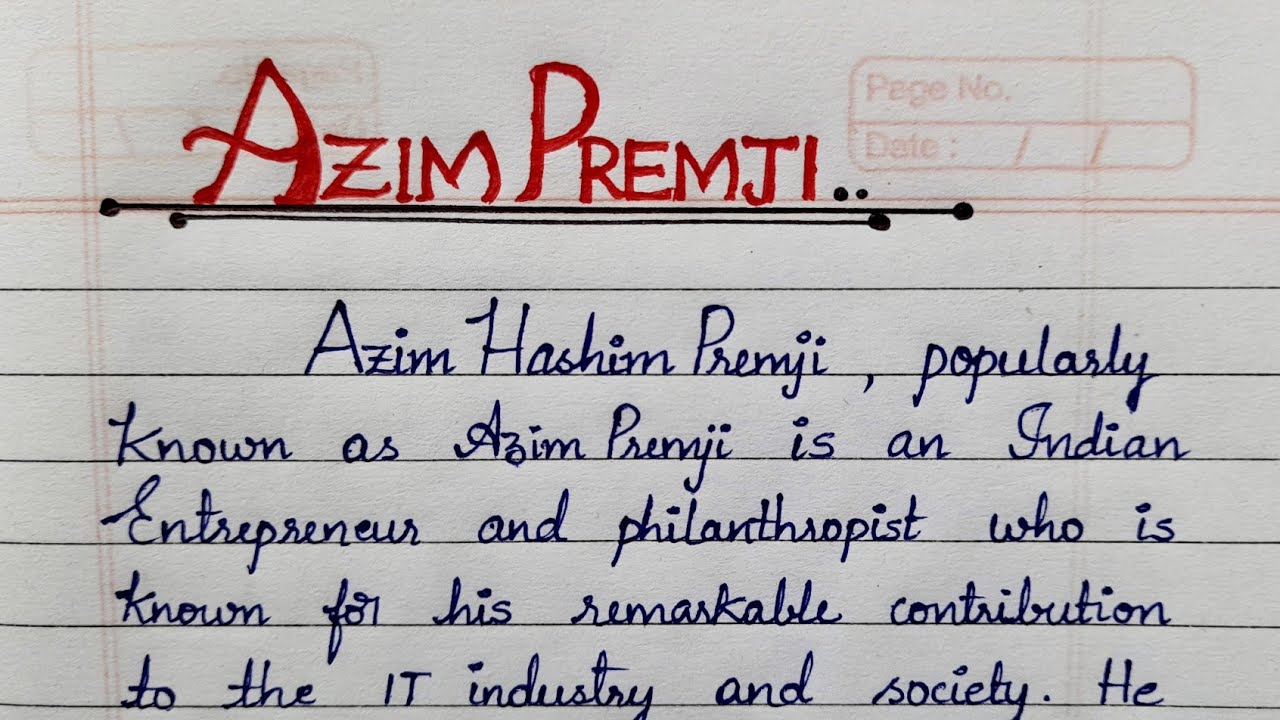 AZIM PREMJI..
Page No.
Date : / /
Azim Hashim Premji, popularly
known as Azim Premji is an Indian
Entrepreneur and philanthropist who is
known for his remarkable contribution
to the IT industry and society. He